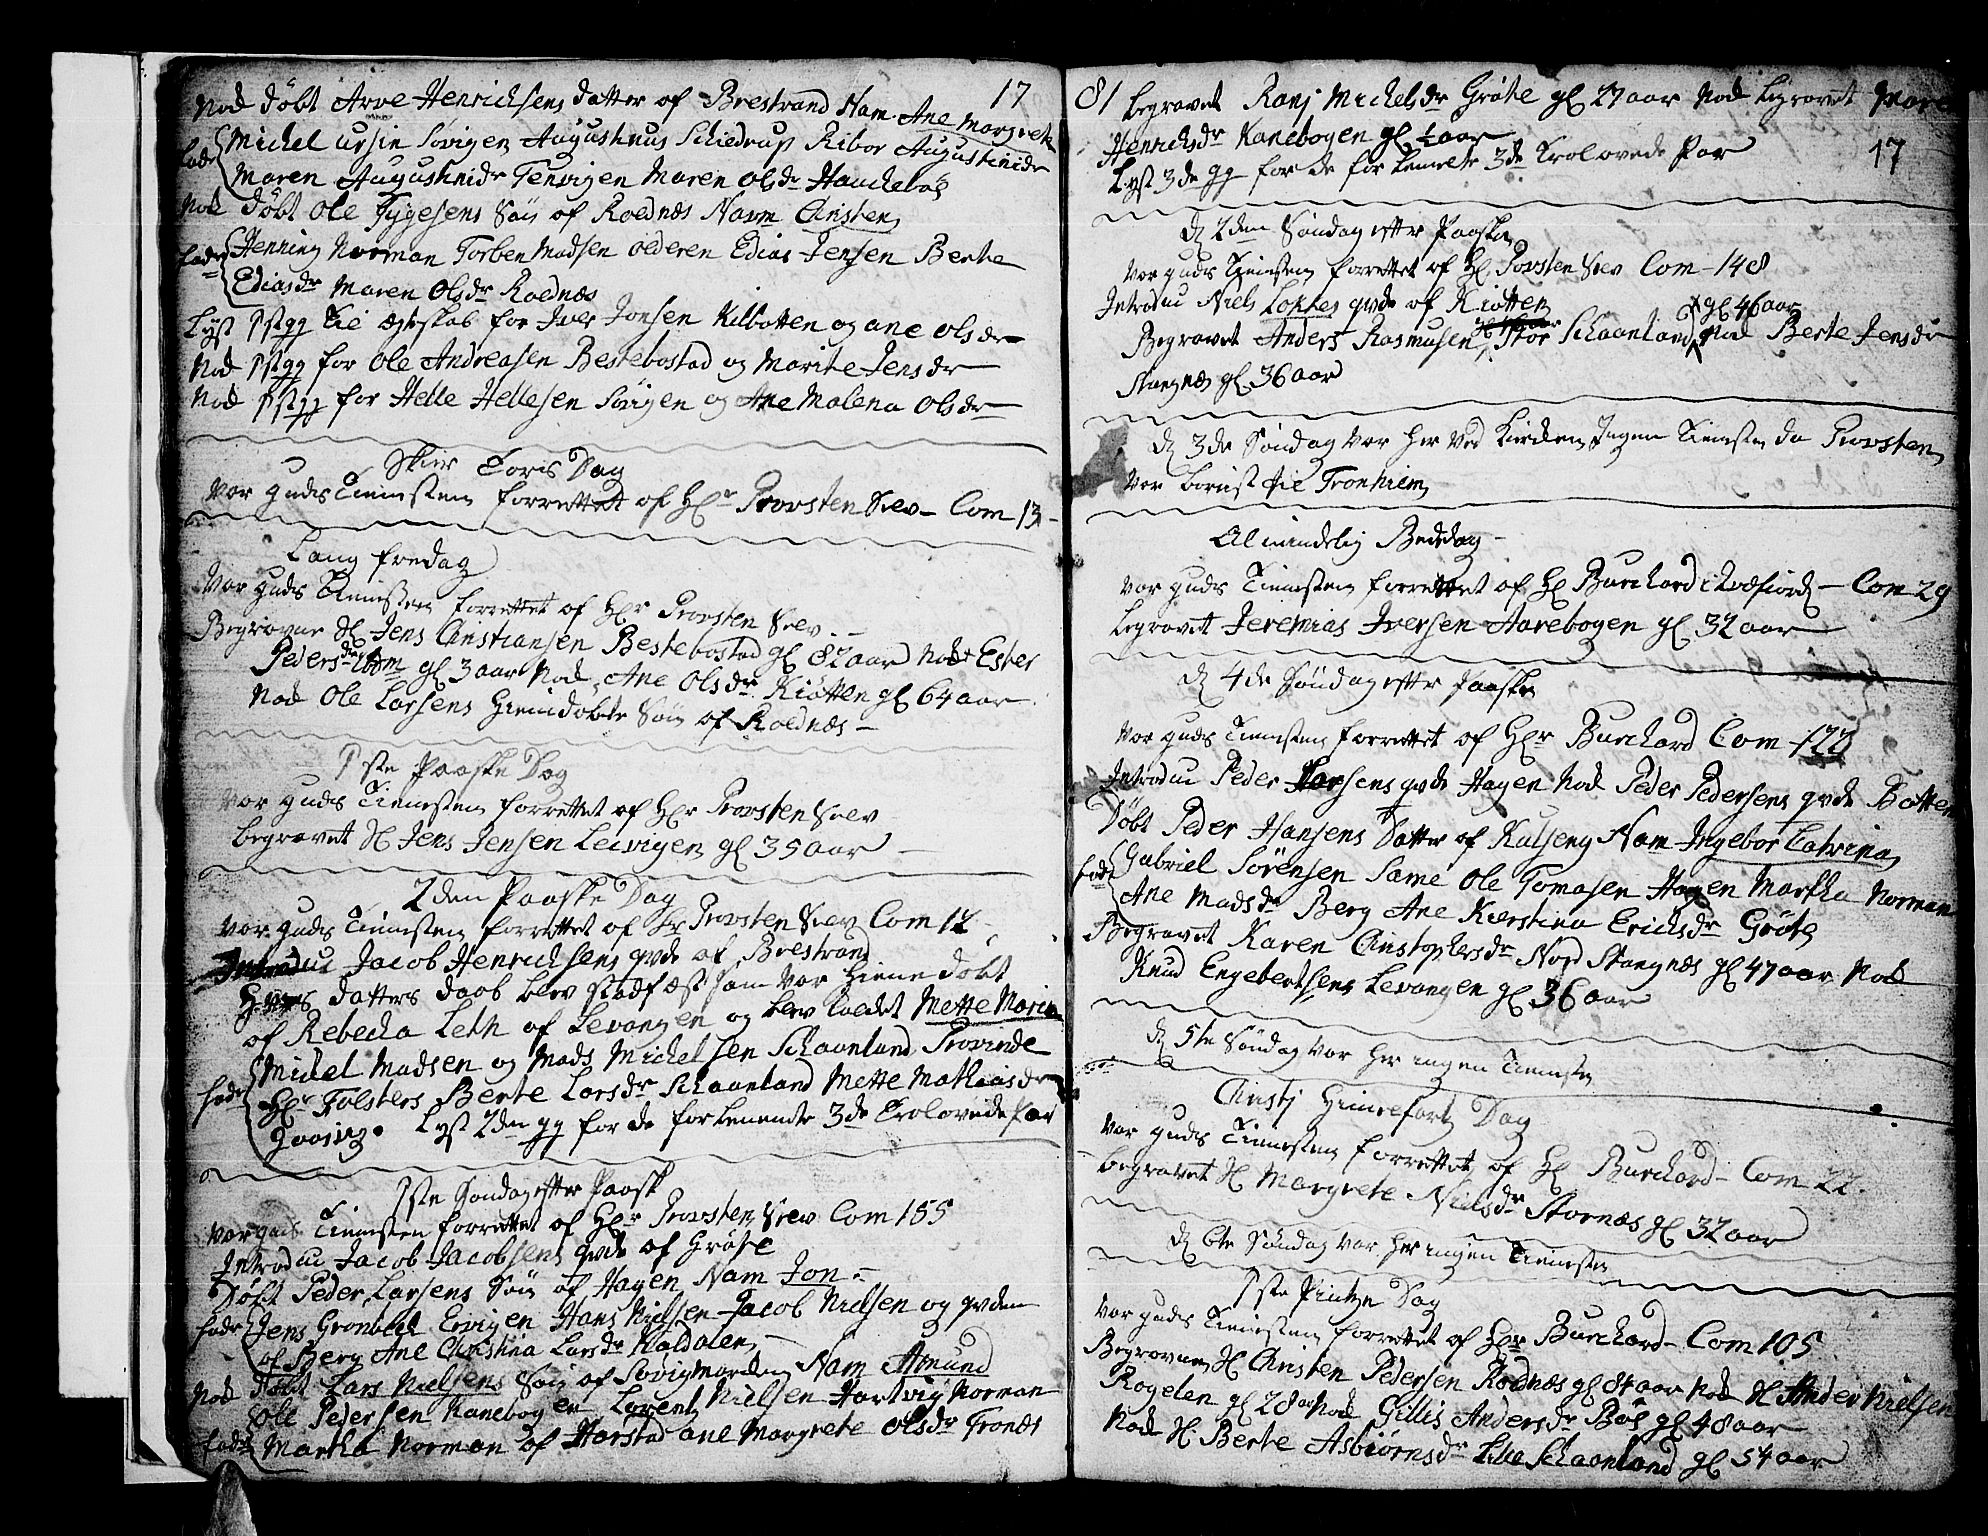 17
Nok døbt Arve Henrichsens datter af Brestrand Nam Ane Margrete
fade Michel Ursin Sørvigen Augustinus Schiedrup Ribor Augustinidr
Maren Augustinidr Tenvigen Maren Olsdr
Nok døbt Ole Tygesens Søn af Roldnæs Navn Christen
fade Henning Norman Torben Madsen Edias Jensen Berte
Ediasdr Maren Olsdr Roldnæs
Lyst 1st gg til Ægteskab for Iver Jonsen Kilbotten og Ane Olsdr
Nok 1st gg for Ole Andreasen Bestebostad og Marite Jensdr
Nok 1st gg for Helle Hellesen Sørvigen og Ane Malena Olsdr
Skier Toris Dag
Var Guds Tienisten forrettet af Hr Provsten Selv Com 13
Lang fredag
Var Guds Tienisten forrettet af Hr Provsten Selv
Begravne Jens Christiansen Bestebostad gl 82 aar Nok Ester
Pedersdr gl 3 aar Nok Ane Olsdr Kiøtten gl 64 aar
Nok Ole Larsens Hiemdøbte Søn af Roldnæs
1ste Paaske Dag
Var Guds Tienisten forrettet af Hr Provsten Selv
begravet Jens Jensen Leirvigen gl 35 aar
2den Paaske Dag
Var Guds Tienisten forrettet af Hr Provsten Selv Com 12
Introdu Jacob Henrichsens qvde af Brestrand
datters daab blev stadfæst som var hieme døbt
af Rebecka Leth af Levangen og blev kaldet Mette Maria
Michel Madsen og Mads Michelsen Schaanland
fade Hr Folsters Berte Larsdr Schaanland Mette Mathiasdr
Lyst 2den gg for de forbemelte 3de Trolovede Par
1ste Søndag efter Paask
Var Guds Tienisten forrettet af Hr Provsten Selv Com 155
Introdu Jacob Jacobsens qvde af Grøte
Døbt Peder Larsens Søn af Hagen Nam Jon
fade Jens Grønbek Ervigen Hans Nielsen Jacob Nielsen og qvden
af Berg Ane Christina Larsdr Haldalen
Nok døbt Lars Nielsens Søn af Nam Amund
Ole Pedersen Kanebogen Lorentz Nielsen Hartvig Norman
fade Martha Norman af Harstad Ane Margrete Olsdr Tronæs
81 begravet Ranj Michelsdr Grøte gl 27 aar Nok begravet Mare
Henrichsdr Kanebogen gl ½ aar
17
Lyst 3de gg for de forbemelte 3de Trolovede Par
D 2den Søndag efter Paaske
Var Guds Tienisten forrettet af Hr Provsten Selv Com 148
Introdu Niels Lockes qvde af Kiøtten
gl 46 aar
Begravet Anders Rasmusen Stor Schaanland Nok Berte Jensdr
Stangnæs gl 36 aar
D 3de Søndag var her ved Kircken Ingen Tienisten da Provsten
var bereist til Tronhiem
Almindelig Bededag
Var Guds Tienisten forrettet af Hr Burchard i Qvæfiord Com 29
begravet Jeremias Iversen Aarebogen gl 32 aar
D 4de Søndag efter Paaske
Var Guds Tienisten forrettet af Hr Burchard Com 122
Introdu Peder Larsens qvde Hagen Nok Peder Pedersens qvde Botten
Døbt Peder Hansens Datter af Kulseng Nam Ingebor Catrina
fade Gabriel Sørensen Same Ole Tomasen Hagen Martha Norman
Ane Madsdr Berg Ane Kierstina Ericksdr Grøte
Begravet Karen Christophersdr Nord Stangnæs gl 47 aar Nok
Knud Engebertsens Levangen gl 36 aar
D 5te Søndag var her ingen Tieniste
Christj Himelfarts Dag
Var Guds Tienisten forrettet af Hr Burchard Com 22
begravet Margrete Nielsdr Stornæs gl 32 aar
D 6te Søndag var her ingen Tienisten
1ste Pintze Dag
Var Guds Tienisten forrettet af Hr Burchard Com 105
Begravne Christen Pedersen Roldnæs gl 84 aar Nok Ander Nielsen
Rogelen gl 28 aar Nok Gillis Andersdr Bøs gl 48 aar
Nok Berte Asbiørnsdr Lille Schaanland gl 54 aar